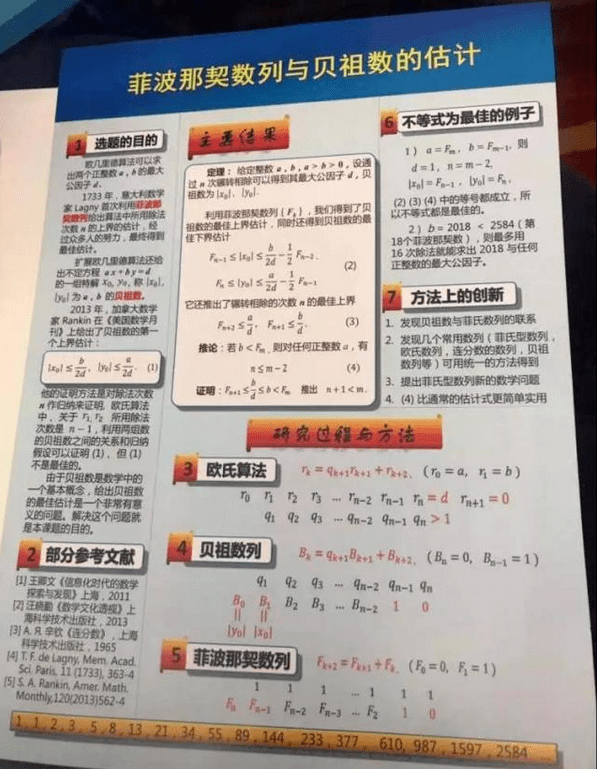 菲波那契数列与贝祖数的估计
1 选题的目的
欧几里德算法可以求
出两个正整数 a, b 的最大
公因子 d.
1733 年，意大利数学
家 Lagny 首次利用菲波那
契数列给出算法中所用除法
次数 n 的上界的估计，经
过众多人的努力，最终得到
最佳估计。
扩展欧几里德算法还给
出不定方程 ax + by = d
的一组特解 x₀, y₀, 称 |x₀|,
|y₀| 为 a, b 的贝祖数。
2013 年，加拿大数学
家 Rankin 在《美国数学月
刊》上给出了贝祖数的第一
个上界估计：
|x₀| ≤ b/2d, |y₀| ≤ a/2d. (1)
他的证明方法是对除法次数
n 作归纳来证明，欧氏算法
中，关于 r₁, r₂ 所用除法
次数是 n − 1，利用两组数
的贝祖数之间的关系和归纳
假设可以证明 (1)、但 (1)
不是最佳的。
由于贝祖数是数学中的
一个基本概念，给出贝祖数
的最佳估计是一个非常有意
义的问题。解决这个问题就
是本课题的目的。
2 部分参考文献
[1] 王卿文《信息化时代的数学
探索与发现》上海，2011
[2] 汪晓勤《数学文化透视》上
海科学技术出版社，2013
[3] А. Я. 辛钦《连分数》，上海
科学技术出版社，1965
[4] T. F. de Lagny, Mem. Acad.
Sci. Paris, 11 (1733), 363-4
[5] S. A. Rankin, Amer. Math.
Monthly,120(2013)562-4
主要结果
定理： 给定整数 a, b, a > b > 0, 设通
过 n 次辗转相除可以得到其最大公因子 d, 贝
祖数为 |x₀|, |y₀|.
利用菲波那契数列 {Fₖ}，我们得到了贝
祖数的最佳上界估计，同时还得到贝祖数的最
佳下界估计
Fₙ₋₁ ≤ |x₀| ≤ b/2d − 1/2 Fₙ₋₂.
(2)
Fₙ ≤ |y₀| ≤ a/2d − 1/2 Fₙ₋₁
它还推出了辗转相除的次数 n 的最佳上界
Fₙ₊₂ ≤ a/d, Fₙ₊₁ ≤ b/d. (3)
推论：若 b < Fₘ, 则对任何正整数 a，有
n ≤ m − 2 (4)
证明：Fₙ₊₁ ≤ b/d ≤ b < Fₘ 推出 n + 1 < m.
6 不等式为最佳的例子
1） a = Fₘ, b = Fₘ₋₁, 则
d = 1, n = m − 2,
|x₀| = Fₙ₋₁, |y₀| = Fₙ,
(2) (3) (4) 中的等号都成立，所
以不等式都是最佳的。
2）b = 2018 < 2584（第
18个菲波那契数），则最多用
16 次除法就能求出 2018 与任何
正整数的最大公因子。
7 方法上的创新
1. 发现贝祖数与菲氏数列的联系
2. 发现几个常用数列（菲氏型数列，
欧氏数列，连分数的数列，贝祖
数列等）可用统一的方法得到
3. 提出菲氏型数列新的数学问题
4. (4) 比通常的估计式更简单实用
研究过程与方法
3 欧氏算法 rₖ = qₖ₊₁rₖ₊₁ + rₖ₊₂, (r₀ = a, r₁ = b)
r₀ r₁ r₂ r₃ ... rₙ₋₂ rₙ₋₁ rₙ = d rₙ₊₁ = 0
q₁ q₂ q₃ ... qₙ₋₂ qₙ₋₁ qₙ > 1
4 贝祖数列 Bₖ = qₖ₊₁Bₖ₊₁ + Bₖ₊₂, (Bₙ = 0, Bₙ₋₁ = 1)
q₁ q₂ q₃ ... qₙ₋₂ qₙ₋₁ qₙ
B₀ B₁ B₂ B₃ ... Bₙ₋₂ 1 0
|| ||
|y₀| |x₀|
5 菲波那契数列 Fₖ₊₂ = Fₖ₊₁ + Fₖ, (F₀ = 0, F₁ = 1)
1 1 1 ... 1 1 1
Fₙ Fₙ₋₁ Fₙ₋₂ Fₙ₋₃ ... F₂ 1 0
1, 1, 2, 3, 5, 8, 13, 21, 34, 55, 89, 144, 233, 377, 610, 987, 1597, 2584 ...